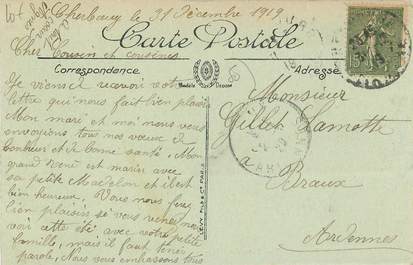 Cherbourg le 31 Décembre 1919
Cher Cousin et cousines
Carte Postale
Correspondance
Adresse
Modèle Déposé
Je viens de recevoir votre
lettre qui nous fait bien plaisir
Mon mari et moi nous vous
envoyions tous nos vœux de
bonheur et de bonne santé. Mon
grand René est marin avec
sa petite Madelon et il est
bien heureux. Vous nous ferez
bien plaisir de vous venez nous
voir cette été avec votre petite
famille, mais il faut tenir
parole, Nous vous embrassons tous
LEVY FILS & Cie PARIS
Monsieur
Gillet Lamotte
a
Braux
Ardennes
15